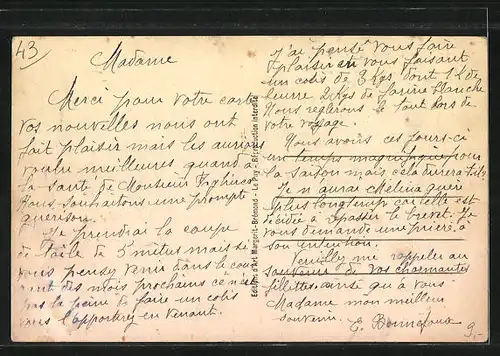 43
Madame
Merci pour votre carte
vos nouvelles nous ont
fait plaisir mais les aurions
voulu meilleures quand à
la santé de Monsieur
nous souhaitons une prompte
guérison.
Je prendrai la coupe
de toile de 5 mètres mais si
vous pensez venir dans le cou
rant des mois prochains ce n'est
pas la peine de faire un colis
vous l'apporterez en venant.
J'ai pensé vous faire
plaisir en vous faisant
un colis de 3 Kgs dont 1 l de
beurre 2 Kgs de farine blanche
Nous règlerons le tout lors de
votre voyage.
Nous avons ces jours-ci
un temps magnifique pour
la saison mais cela durera-t-il
Je n'aurai guère
plus longtemps car elle est
décidée à repasser le brevet. Je
vous demande une prière à
son intention.
Veuillez me rappeler au
souvenir de vos charmantes
fillettes ainsi qu'à vous
Madame mon meilleur
souvenir. E. Bonnefoux
9.-
Editions d'Art Margerit-Brémond - Le Puy - Reproduction interdite